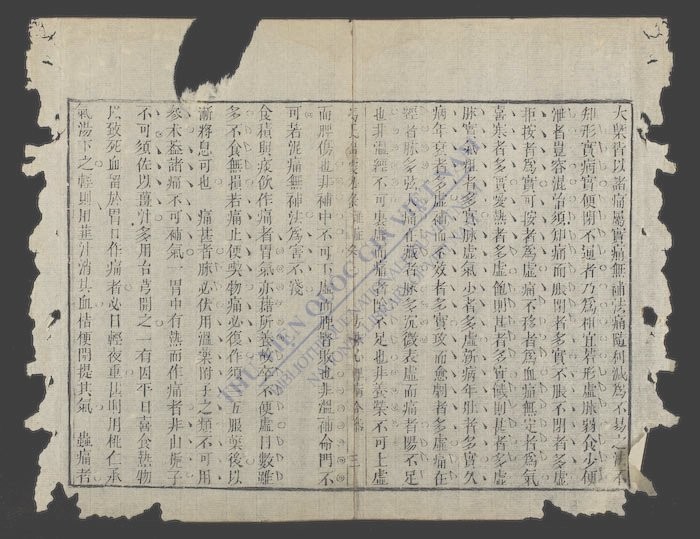 大槩皆以諸痛屬實痛無補法痛隨利減為不易之法不
知形實病實便閉不通者乃為相宜若形虛脈弱食少便
泄者豈容混治須知痛而脹閉者多實不脹不閉者多虛
拒按者為實可按者為虛痛不移者為血痛無定者為氣
喜寒者多實愛熱者多虛飽則甚者多實饑則甚者多虛
脈實氣粗者多實脈虛氣少者多虛新病年壯者多實久
病年衰者多虛補而不效者多實攻而愈劇者多虛痛在
經者脈多弦大痛在臟者脈多沉微表虛而痛者陽不足
也非溫經不可裏虛而痛者陰不足也非養榮不可上虛
而脾傷也非補中不可下虛而脾腎敗也非溫補命門不
可若混痛無補法為害不淺
食積與痰飲作痛者胃氣亦藉所養 卒不便虛日數雖
多不食無損若痛止便喫物痛必復作須 五服藥後以
漸將息可也 痛甚者脈必伏用溫藥附子之類不可用
參朮蓋諸痛不可補氣一胃中有熱而作痛者非山梔子
不可須佐以薑汁多用台芎開之一有因平日喜食熱物
以致死血留於胃口作痛者必日輕夜重 用桃仁承
氣湯下之輕則用韮汁消其血桔梗開提其氣 蟲痛者
三
THƯ VIỆN QUỐC GIA VIỆT NAM
BIBLIOTHÈQUE NATIONALE DU VIETNAM
NATIONAL LIBRARY OF VIETNAM